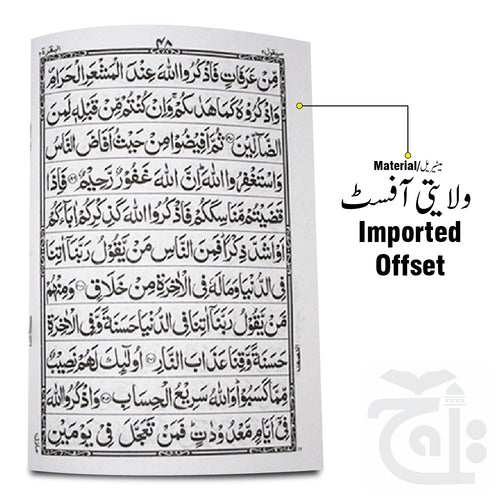 البقرة ٢
٤٨
سيقول ٢
مِّنْ عَرَفَاتٍ فَاذْكُرُوا اللّٰهَ عِنْدَ الْمَشْعَرِ الْحَرَامِ
وَاذْكُرُوْهُ كَمَا هَدٰىكُمْ ۚ وَاِنْ كُنْتُمْ مِّنْ قَبْلِهٖ لَمِنَ
الضَّآلِّيْنَ ۝ ثُمَّ اَفِيْضُوْا مِنْ حَيْثُ اَفَاضَ النَّاسُ
وَاسْتَغْفِرُوا اللّٰهَ ؕ اِنَّ اللّٰهَ غَفُوْرٌ رَّحِيْمٌ ۝ فَاِذَا
قَضَيْتُمْ مَّنَاسِكَكُمْ فَاذْكُرُوا اللّٰهَ كَذِكْرِكُمْ اٰبَآءَكُمْ
اَوْ اَشَدَّ ذِكْرًا ؕ فَمِنَ النَّاسِ مَنْ يَّقُوْلُ رَبَّنَآ اٰتِنَا
فِى الدُّنْيَا وَمَا لَهٗ فِى الْاٰخِرَةِ مِنْ خَلَاقٍ ۝ وَمِنْهُمْ
مَّنْ يَّقُوْلُ رَبَّنَآ اٰتِنَا فِى الدُّنْيَا حَسَنَةً وَّفِى الْاٰخِرَةِ
حَسَنَةً وَّقِنَا عَذَابَ النَّارِ ۝ اُولٰٓئِكَ لَهُمْ نَصِيْبٌ
مِّمَّا كَسَبُوْا ؕ وَاللّٰهُ سَرِيْعُ الْحِسَابِ ۝ وَاذْكُرُوا اللّٰهَ
فِىْٓ اَيَّامٍ مَّعْدُوْدٰتٍ ؕ فَمَنْ تَعَجَّلَ فِىْ يَوْمَيْنِ
Material/میٹیریل
ولایتی آفسٹ
Imported
Offset